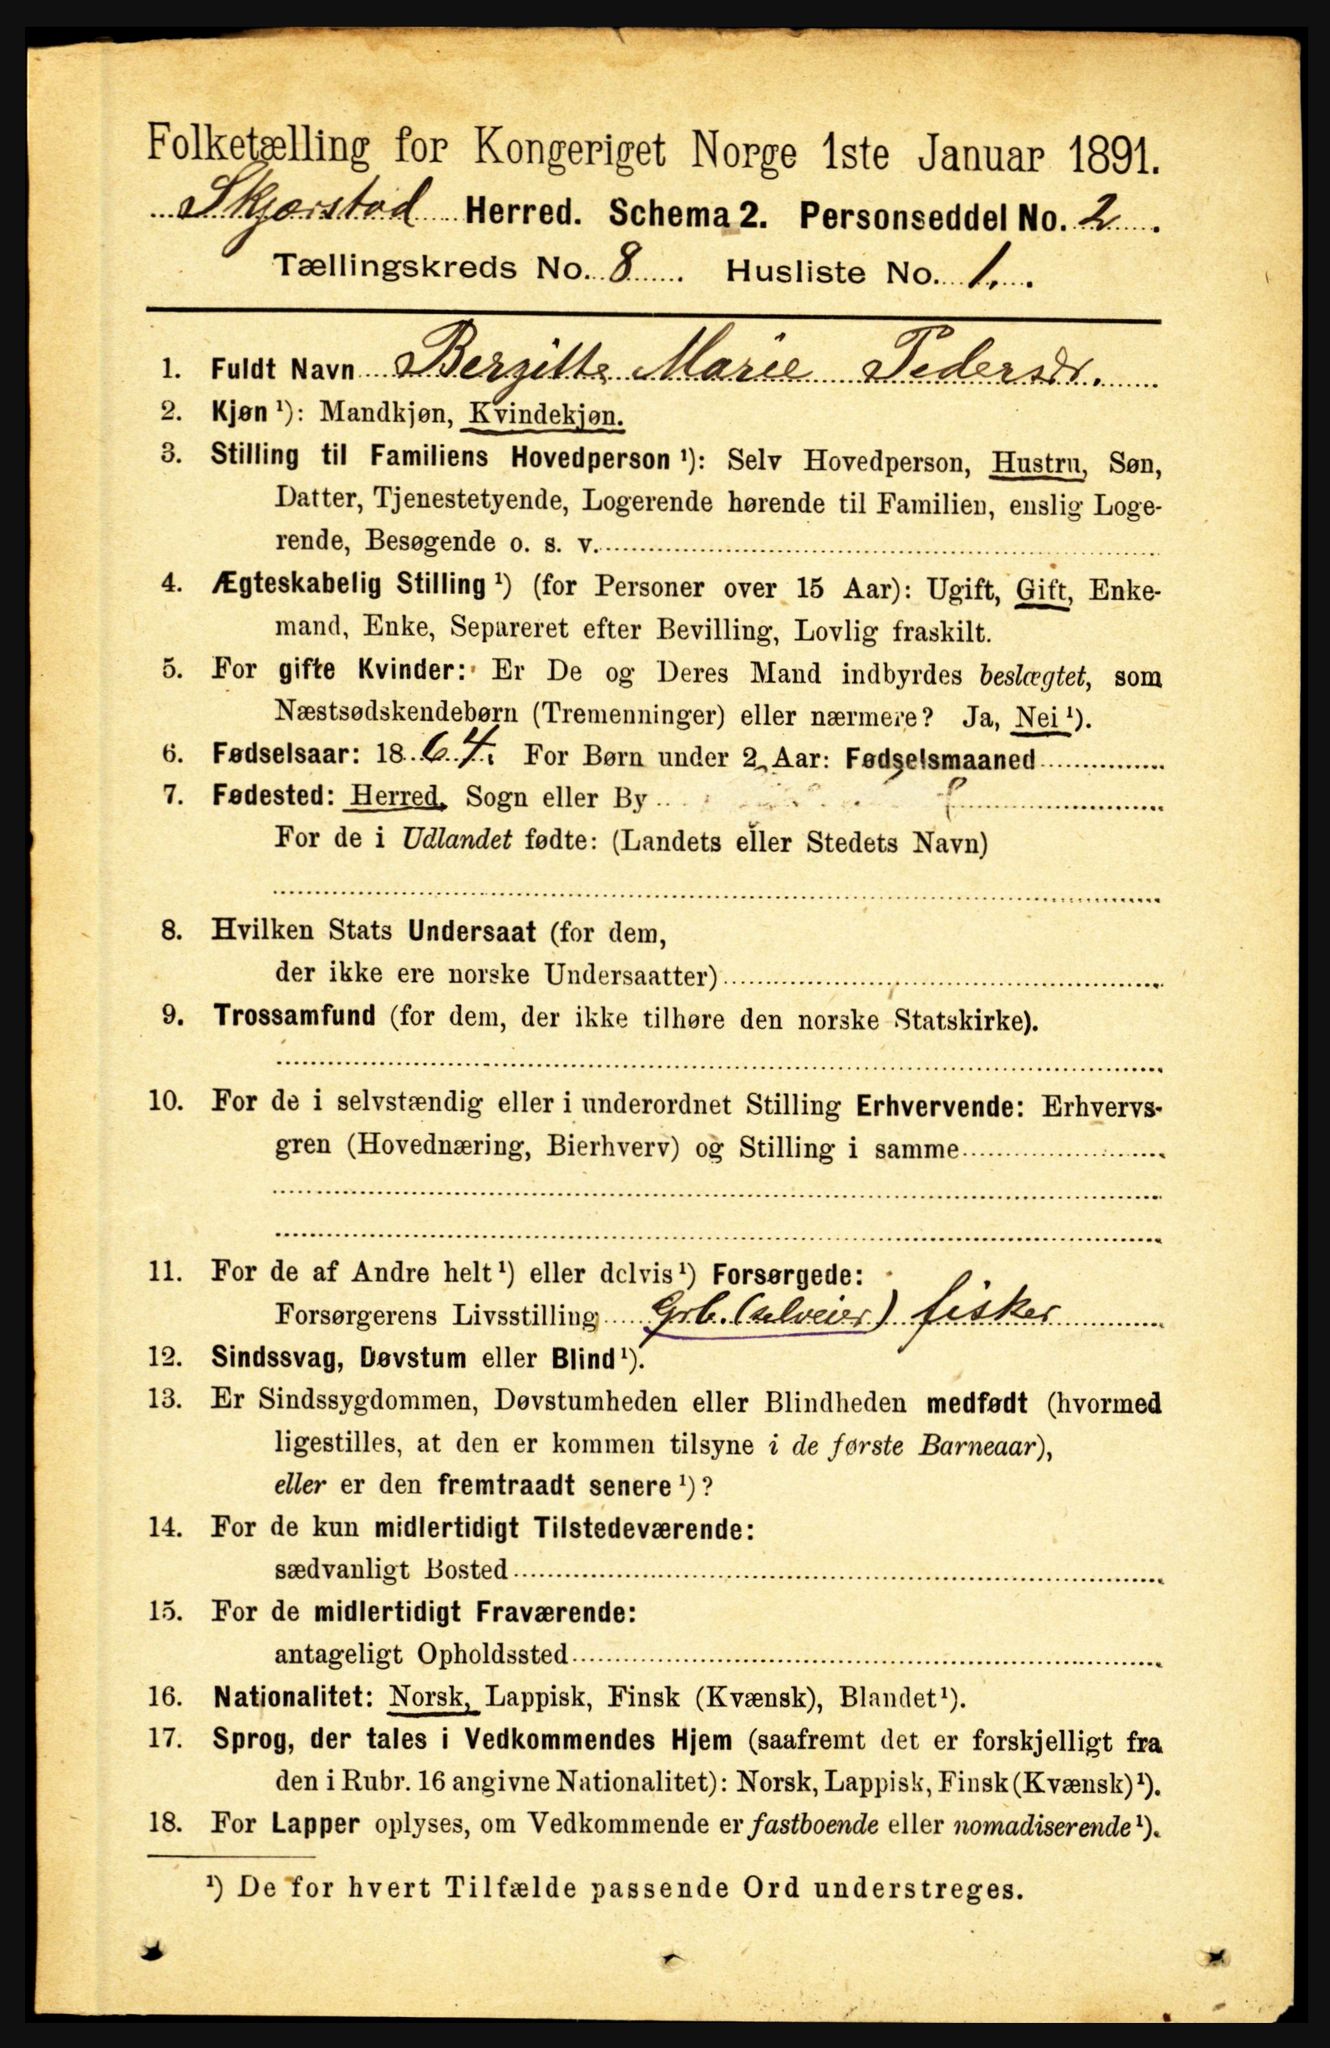 Folketælling for Kongeriget Norge 1ste Januar 1891.
Skjerstad Herred. Schema 2. Personseddel No. 2.
Tællingskreds No. 8. Husliste No. 1.
1. Fuldt Navn Bergitte Marie Pedersdr.
2. Kjøn ¹): Mandkjøn, Kvindekjøn.
3. Stilling til Familiens Hovedperson ¹): Selv Hovedperson, Hustru, Søn,
Datter, Tjenestetyende, Logerende hørende til Familien, enslig Loge-
rende, Besøgende o. s. v.
4. Ægteskabelig Stilling ¹) (for Personer over 15 Aar): Ugift, Gift, Enke-
mand, Enke, Separeret efter Bevilling, Lovlig fraskilt.
5. For gifte Kvinder: Er De og Deres Mand indbyrdes beslægtet, som
Næstsødskendebørn (Tremenninger) eller nærmere? Ja, Nei ¹).
6. Fødselsaar: 1864. For Børn under 2 Aar: Fødselsmaaned
7. Fødested: Herred, Sogn eller By
For de i Udlandet fødte: (Landets eller Stedets Navn)
8. Hvilken Stats Undersaat (for dem,
der ikke ere norske Undersaatter)
9. Trossamfund (for dem, der ikke tilhøre den norske Statskirke).
10. For de i selvstændig eller i underordnet Stilling Erhvervende: Erhvervs-
gren (Hovednæring, Bierhverv) og Stilling i samme
11. For de af Andre helt ¹) eller delvis ¹) Forsørgede:
Forsørgerens Livsstilling Grb. (selveier) fisker
12. Sindssvag, Døvstum eller Blind ¹).
13. Er Sindssygdommen, Døvstumheden eller Blindheden medfødt (hvormed
ligestilles, at den er kommen tilsyne i de første Barneaar),
eller er den fremtraadt senere ¹)?
14. For de kun midlertidigt Tilstedeværende:
sædvanligt Bosted
15. For de midlertidigt Fraværende:
antageligt Opholdssted
16. Nationalitet: Norsk, Lappisk, Finsk (Kvænsk), Blandet ¹).
17. Sprog, der tales i Vedkommendes Hjem (saafremt det er forskjelligt fra
den i Rubr. 16 angivne Nationalitet): Norsk, Lappisk, Finsk (Kvænsk) ¹).
18. For Lapper oplyses, om Vedkommende er fastboende eller nomadiserende ¹).
¹) De for hvert Tilfælde passende Ord understreges.